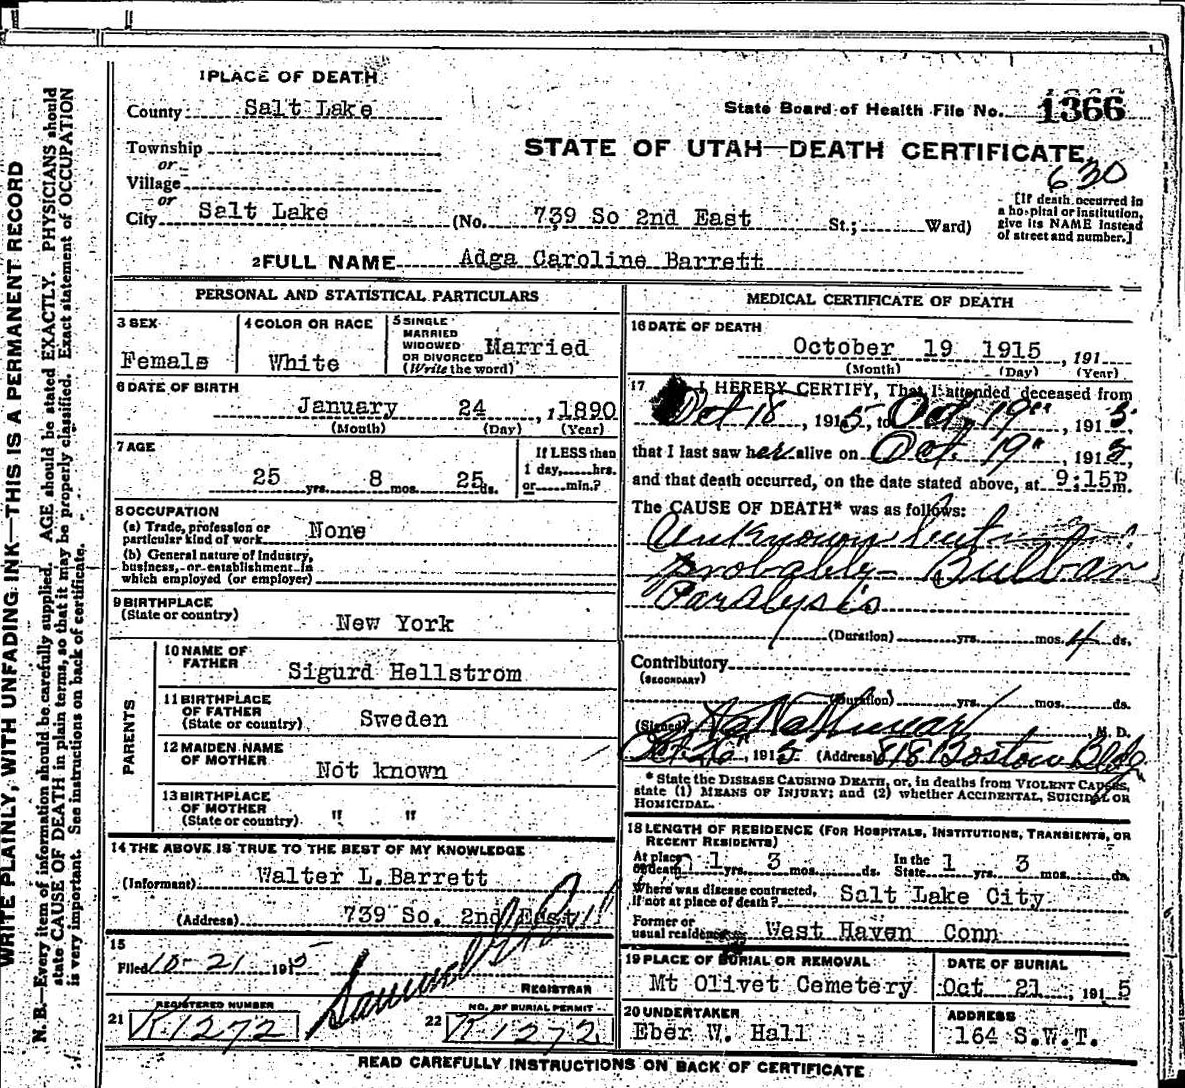 1 PLACE OF DEATH
County Salt Lake
State Board of Health File No. 1366
Township
or
Village
or
STATE OF UTAH—DEATH CERTIFICATE
630
City Salt Lake (No. 739 So 2nd East St.; Ward)
[If death occurred in a hospital or institution, give its NAME instead of street and number.]
2 FULL NAME Adga Caroline Barrett
PERSONAL AND STATISTICAL PARTICULARS
3 SEX
Female
4 COLOR OR RACE
White
5 SINGLE
MARRIED
WIDOWED
OR DIVORCED
(Write the word)
Married
6 DATE OF BIRTH
January 24, 1890
(Month) (Day) (Year)
7 AGE
25 yrs. 8 mos. 25 ds.
If LESS than
1 day, hrs.
or min.?
8 OCCUPATION
(a) Trade, profession or
particular kind of work None
(b) General nature of industry,
business, or establishment in
which employed (or employer)
9 BIRTHPLACE
(State or country)
New York
PARENTS
10 NAME OF
FATHER
Sigurd Hellstrom
11 BIRTHPLACE
OF FATHER
(State or country)
Sweden
12 MAIDEN NAME
OF MOTHER
Not known
13 BIRTHPLACE
OF MOTHER
(State or country)
" "
14 THE ABOVE IS TRUE TO THE BEST OF MY KNOWLEDGE
(Informant) Walter L. Barrett
(Address) 739 So. 2nd East
15
Filed 10-21 1915
REGISTRAR
REGISTERED NUMBER
21 K1272
NO. OF BURIAL PERMIT
22 K1272
MEDICAL CERTIFICATE OF DEATH
16 DATE OF DEATH
October 19 1915, 191
(Month) (Day) (Year)
17 I HEREBY CERTIFY, That I attended deceased from
Oct 18, 1915, to Oct. 19", 1915,
that I last saw her alive on Oct. 19", 1915,
and that death occurred, on the date stated above, at 9:15P m.
The CAUSE OF DEATH* was as follows:
Unknown but
Probably Bulbar
Paralysis
(Duration) yrs. mos. 4 ds.
Contributory
(SECONDARY)
(Duration) yrs. mos. ds.
(Signed) M. D.
Oct 26, 1915 (Address) 818 Boston Bldg
* State the DISEASE CAUSING DEATH, or, in deaths from VIOLENT CAUSES,
state (1) MEANS OF INJURY; and (2) whether ACCIDENTAL, SUICIDAL OR
HOMICIDAL.
18 LENGTH OF RESIDENCE (FOR HOSPITALS, INSTITUTIONS, TRANSIENTS, OR
RECENT RESIDENTS)
At place
of death 1 yrs. 3 mos. ds.
In the
State 1 yrs. 3 mos. ds.
Where was disease contracted,
if not at place of death? Salt Lake City
Former or
usual residence West Haven Conn
19 PLACE OF BURIAL OR REMOVAL
Mt Olivet Cemetery
DATE OF BURIAL
Oct 21, 1915
20 UNDERTAKER
Eber W. Hall
ADDRESS
164 S.W.T.
READ CAREFULLY INSTRUCTIONS ON BACK OF CERTIFICATE
WRITE PLAINLY, WITH UNFADING INK—THIS IS A PERMANENT RECORD
N. B.—Every item of information should be carefully supplied. AGE should be stated EXACTLY. PHYSICIANS should
state CAUSE OF DEATH in plain terms, so that it may be properly classified. Exact statement of OCCUPATION
is very important. See instructions on back of certificate.